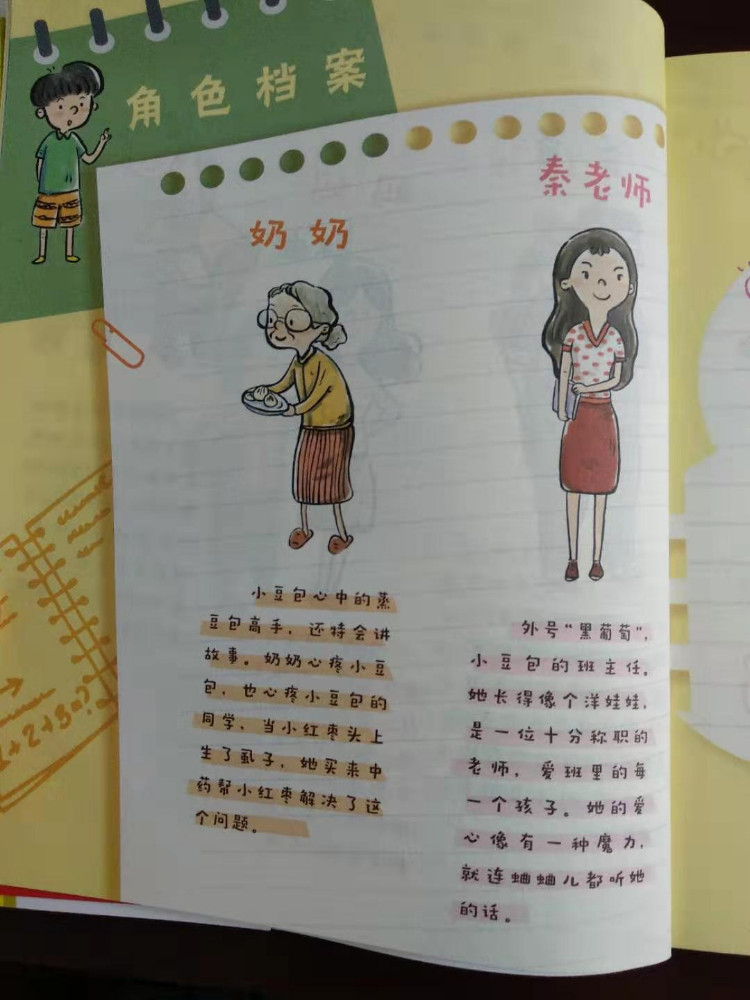 角色档案
奶奶
小豆包心中的蒸
豆包高手，还特会讲
故事。奶奶心疼小豆
包，也心疼小豆包的
同学，当小红枣头上
生了虱子，她买来中
药帮小红枣解决了这
个问题。
秦老师
外号“黑葡萄”，
小豆包的班主任。
她长得像个洋娃娃，
是一位十分称职的
老师，爱班里的每
一个孩子。她的爱
心像有一种魔力，
就连蛐蛐儿都听她
的话。
1+2+3=?